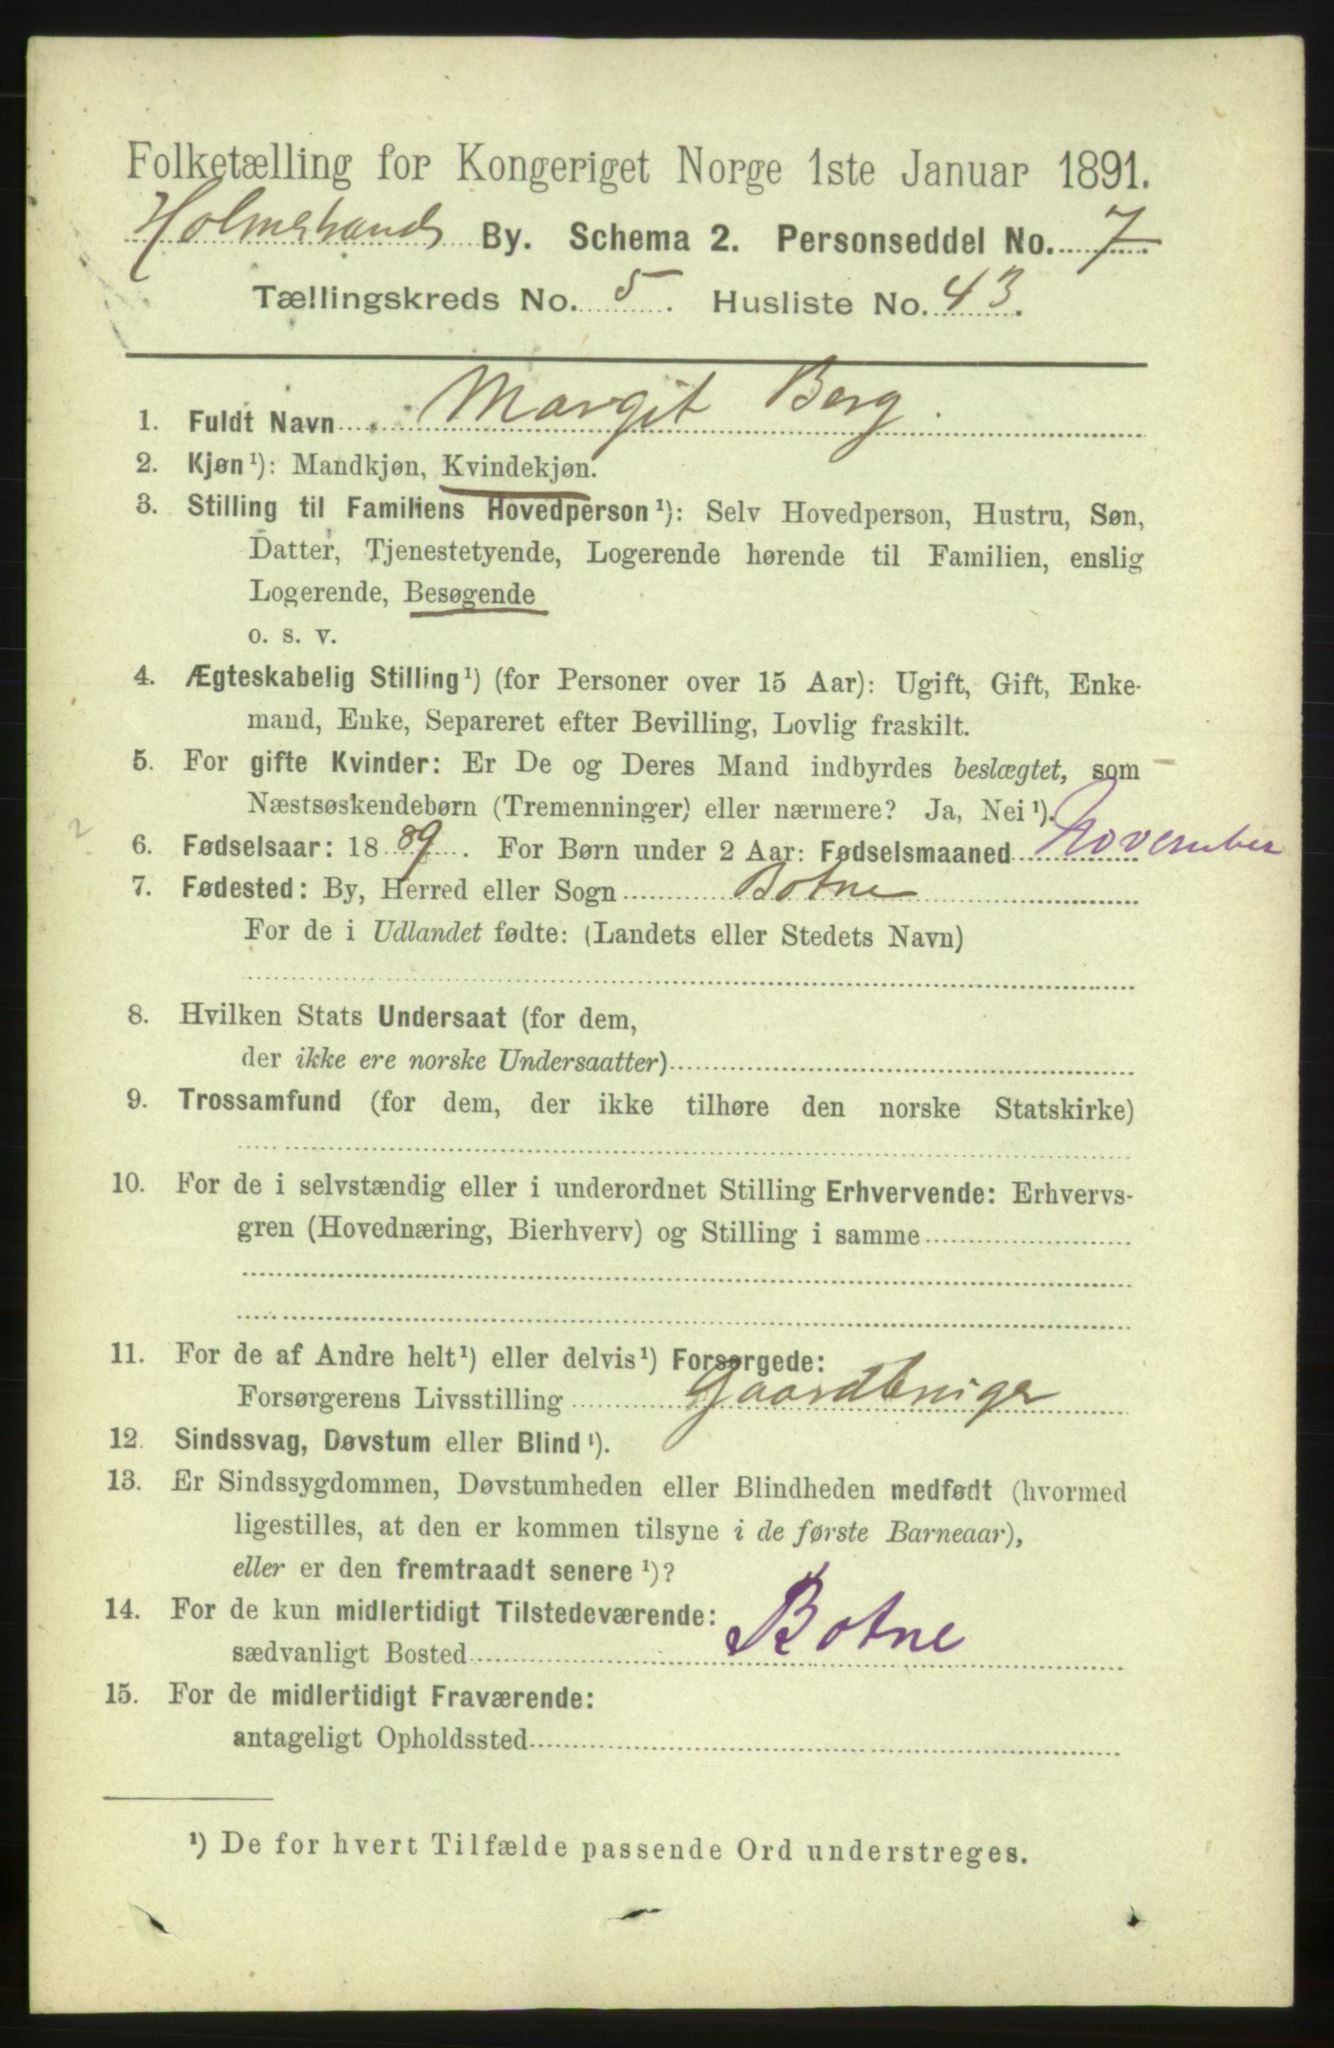 Folketælling for Kongeriget Norge 1ste Januar 1891.
Holmestrands By. Schema 2. Personseddel No. 7
Tællingskreds No. 5. Husliste No. 43.
1. Fuldt Navn Margit Berg.
2. Kjøn¹): Mandkjøn, Kvindekjøn.
3. Stilling til Familiens Hovedperson¹): Selv Hovedperson, Hustru, Søn,
Datter, Tjenestetyende, Logerende hørende til Familien, enslig
Logerende, Besøgende
o. s. v.
4. Ægteskabelig Stilling¹) (for Personer over 15 Aar): Ugift, Gift, Enke-
mand, Enke, Separeret efter Bevilling, Lovlig fraskilt.
5. For gifte Kvinder: Er De og Deres Mand indbyrdes beslægtet, som
Næstsøskendebørn (Tremenninger) eller nærmere? Ja, Nei¹).
2
6. Fødselsaar: 1889. For Børn under 2 Aar: Fødselsmaaned November
7. Fødested: By, Herred eller Sogn Botne
For de i Udlandet fødte: (Landets eller Stedets Navn)
8. Hvilken Stats Undersaat (for dem,
der ikke ere norske Undersaatter)
9. Trossamfund (for dem, der ikke tilhøre den norske Statskirke)
10. For de i selvstændig eller i underordnet Stilling Erhvervende: Erhvervs-
gren (Hovednæring, Bierhverv) og Stilling i samme
11. For de af Andre helt¹) eller delvis¹) Forsørgede:
Forsørgerens Livsstilling Gaardbruger
12. Sindssvag, Døvstum eller Blind¹).
13. Er Sindssygdommen, Døvstumheden eller Blindheden medfødt (hvormed
ligestilles, at den er kommen tilsyne i de første Barneaar),
eller er den fremtraadt senere¹)?
14. For de kun midlertidigt Tilstedeværende:
sædvanligt Bosted Botne
15. For de midlertidigt Fraværende:
antageligt Opholdssted
¹) De for hvert Tilfælde passende Ord understreges.